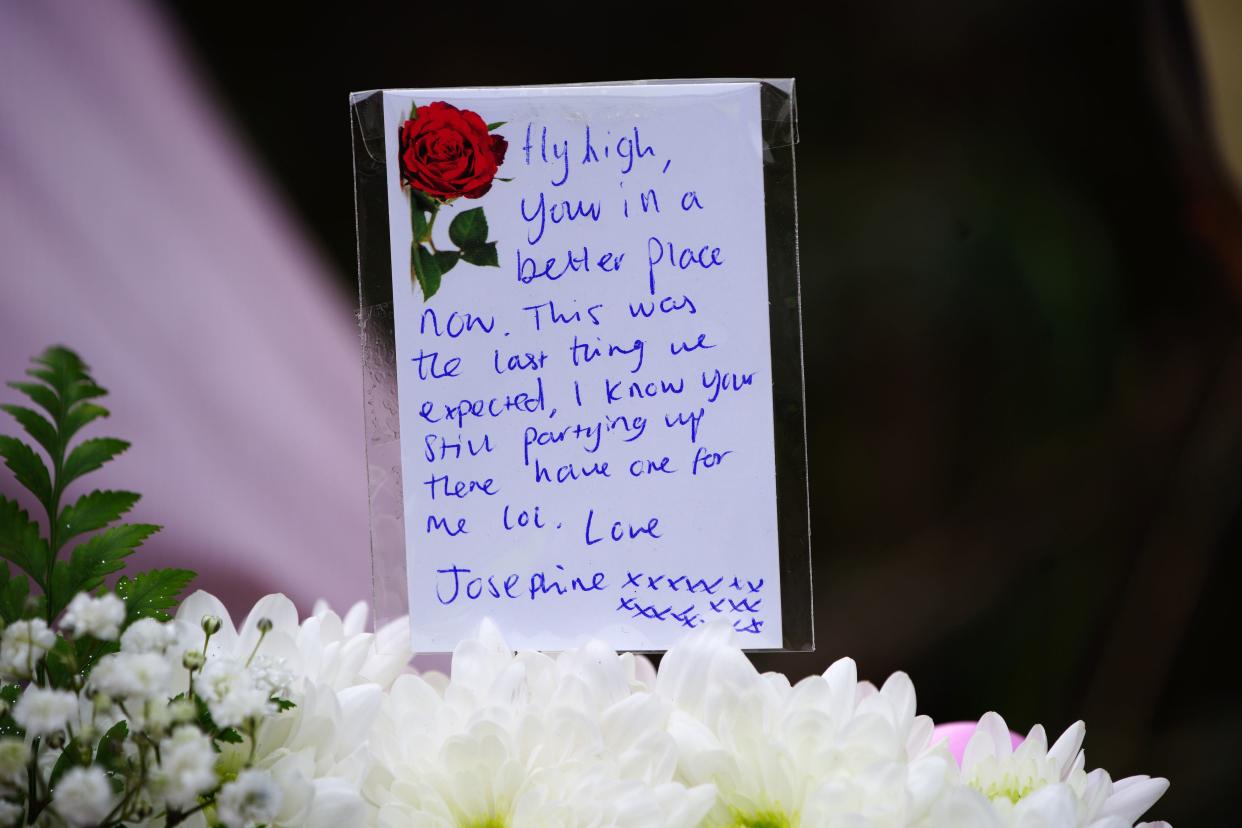 fly high,
your in a
better place
now. This was
the last thing we
expected, I know your
still partying up
there have one for
me lol. Love
Josephine xxxxxxxx
xxxxx xxx
xx